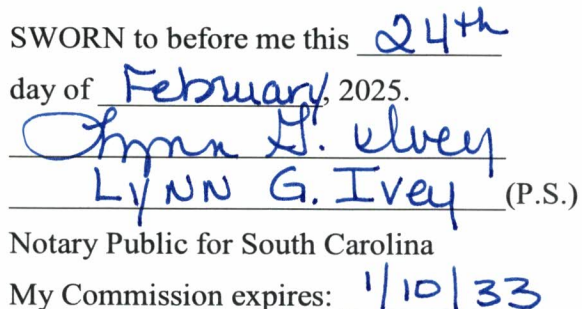 SWORN to before me this 24th
day of February, 2025.
Lynn G. Ivey
LYNN G. Ivey (P.S.)
Notary Public for South Carolina
My Commission expires: 1/10/33